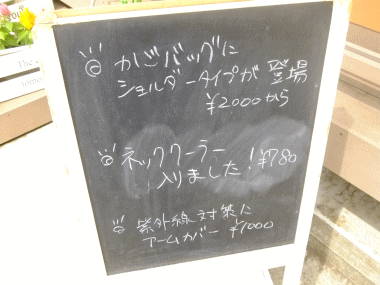 かごバッグに
ショルダータイプが登場
¥2000から
ネッククーラー
入りました!¥780
紫外線対策に
アームカバー ¥1000
The
tomorrow